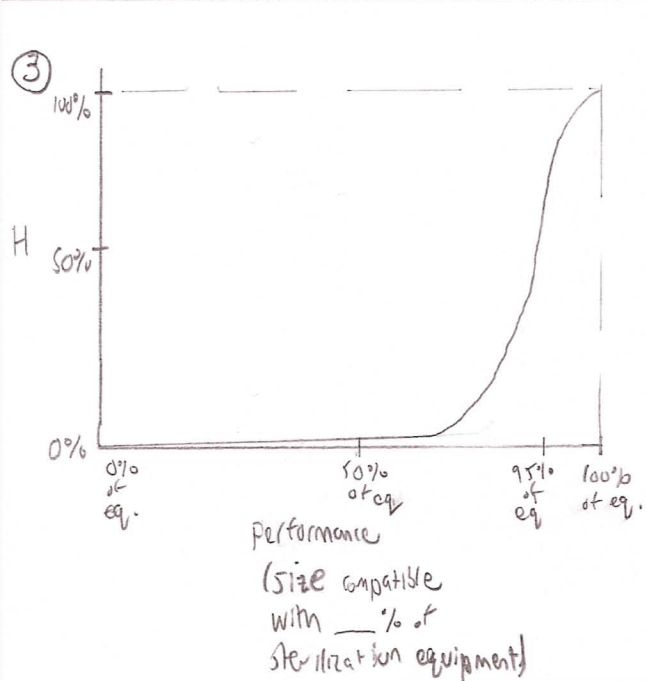 3
100%
H
50%
0%
0%
of
eq.
50%
of eq
95%
of
eq
100%
of eq.
performance
(size compatible
with __% of
sterilization equipment)